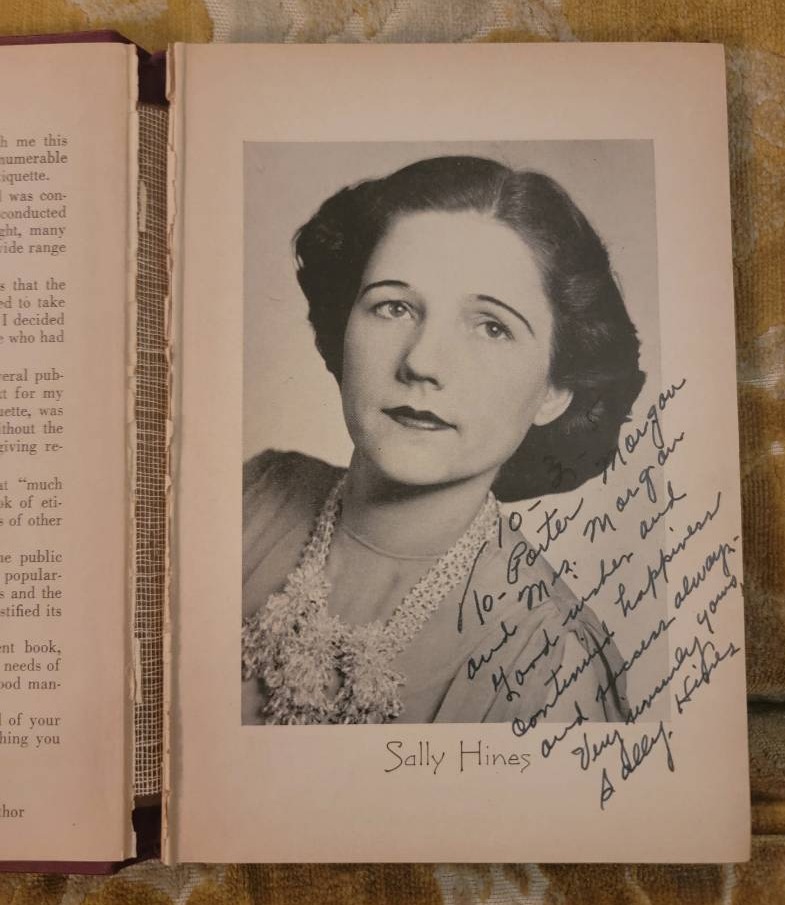 h me this
numerable
iquette.
was con-
conducted
ght, many
vide range
s that the
ed to take
I decided
e who had
veral pub-
xt for my
uette, was
ithout the
giving re-
at "much
ok of eti-
s of other
he public
popular-
s and the
stified its
ent book,
needs of
ood man-
l of your
hing you
thor
10-3-5
To- Porter Morgan
and Mrs. Morgan
Good wishes and
continued happiness
and success always-
Very sincerely yours,
Sally Hines
Sally Hines